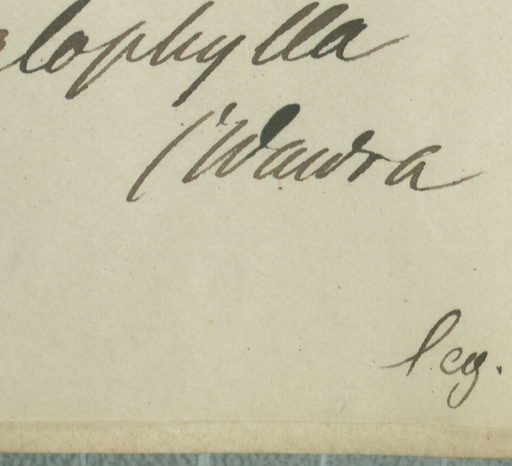 lophylla
(Wawra
leg.